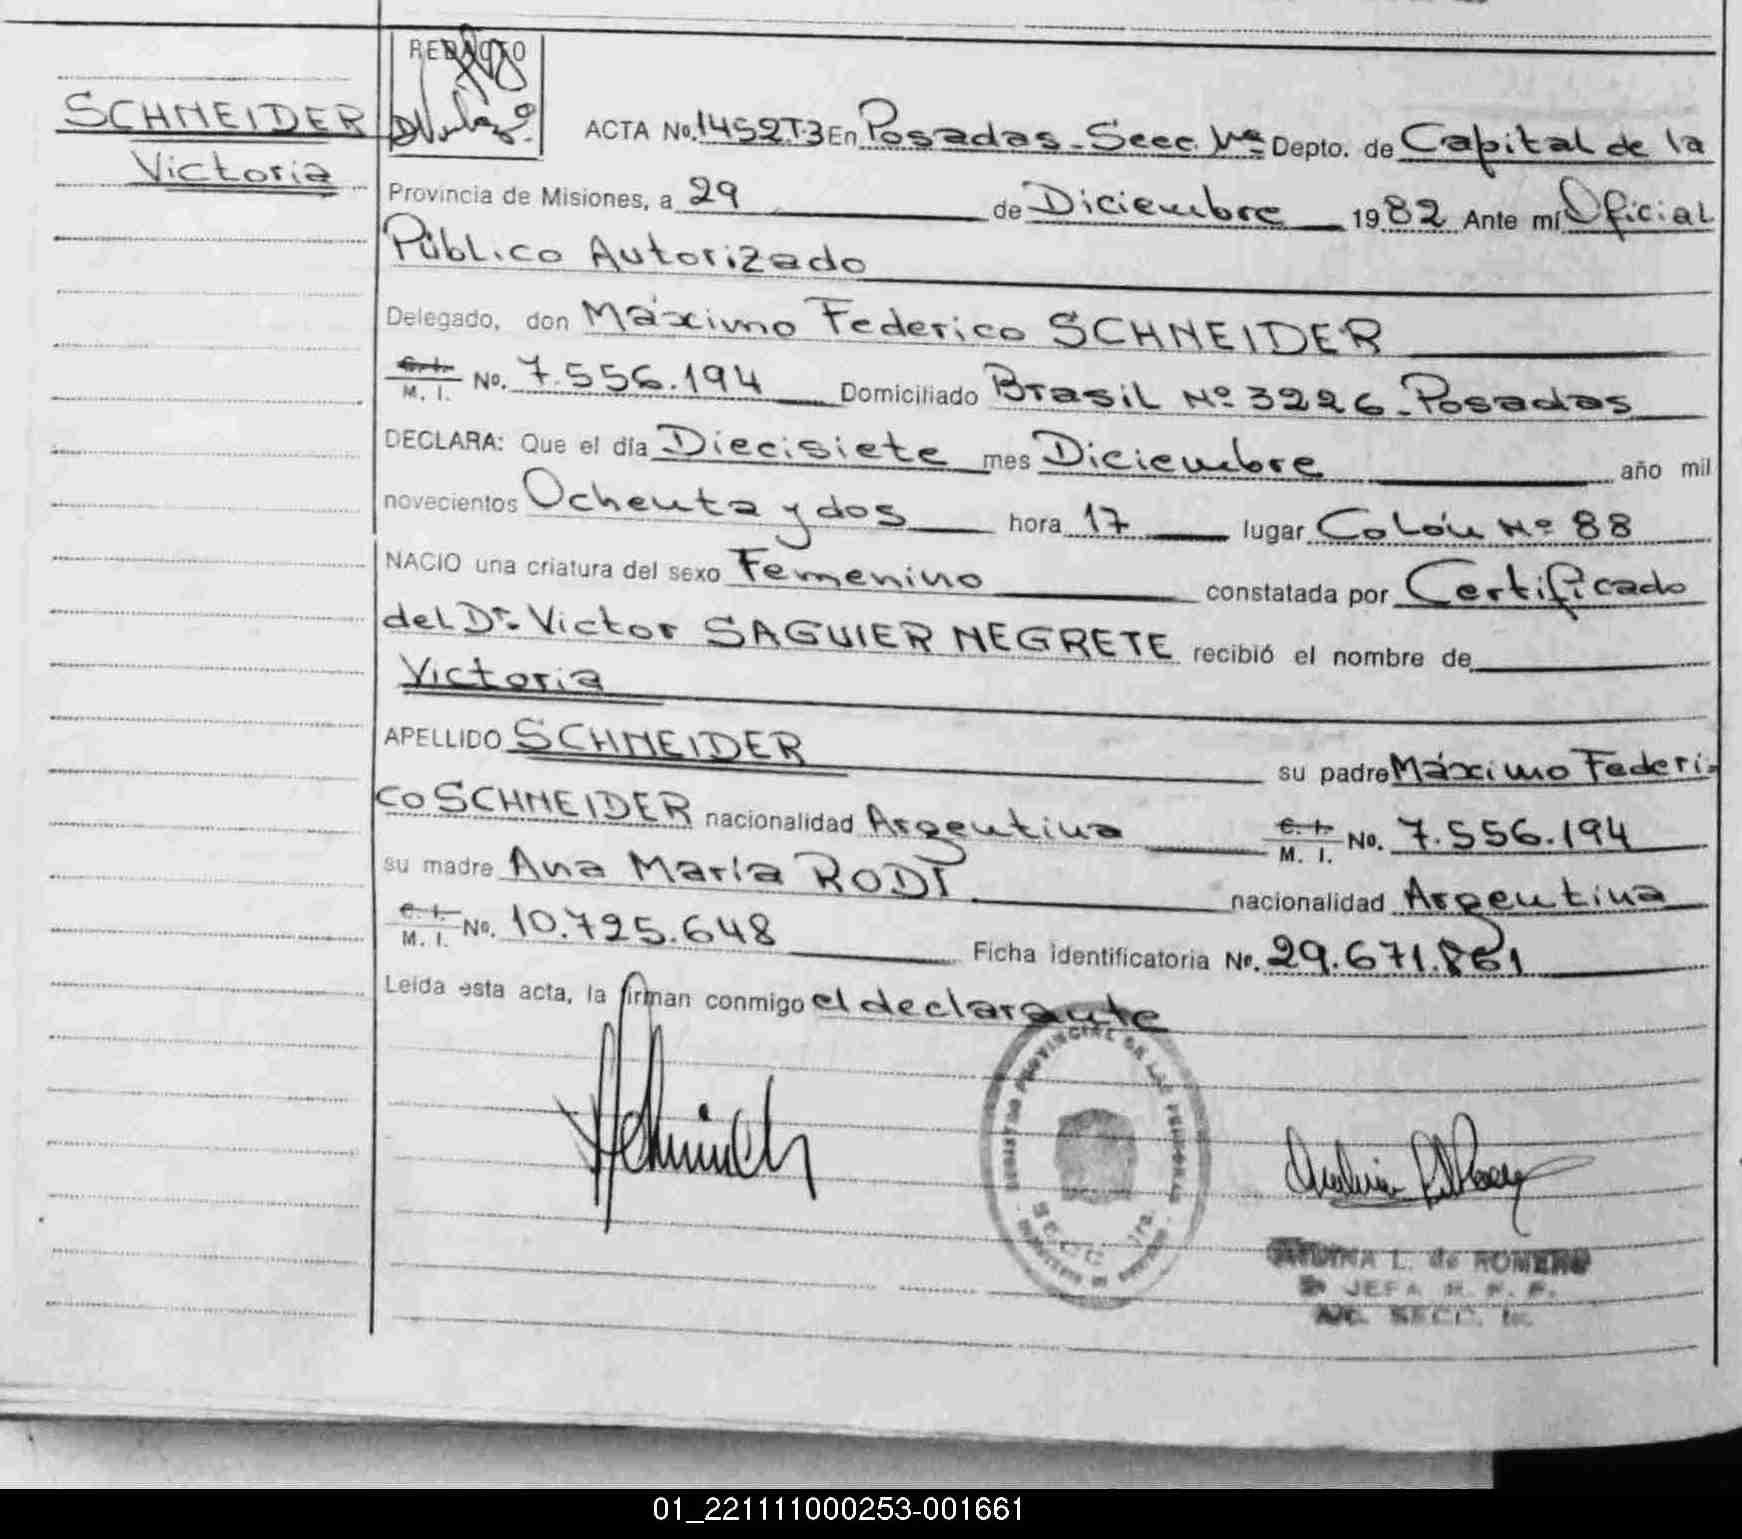 REDACTO
SCHNEIDER
Victoria
ACTA No. 1452T.3 En Posadas-Secc. 1ª Depto. de Capital de la
Provincia de Misiones, a 29 de Diciembre 1982 Ante mí Oficial
Público Autorizado
Delegado, don Máximo Federico SCHNEIDER
C. I. M. I. No. 7.556.194 Domiciliado Brasil Nº 3226-Posadas
DECLARA: Que el día Diecisiete mes Diciembre año mil
novecientos Ochenta y dos hora 17 lugar Colón Nº 88
NACIO una criatura del sexo Femenino constatada por Certificado
del Dr. Victor SAGUIER NEGRETE recibió el nombre de
Victoria
APELLIDO SCHNEIDER su padre Máximo Federi-
co SCHNEIDER nacionalidad Argentina C. I. M. I. No. 7.556.194
su madre Ana María RODI nacionalidad Argentina
C. I. M. I. No. 10.725.648 Ficha identificatoria No. 29.671.861
Leída esta acta, la firman conmigo el declarante
REGISTRO PROVINCIAL DE LAS PERSONAS
SECC. 1ra.
L. de ROMERO
JEFA R. P. P.
SECC. 1a.
01_221111000253-001661